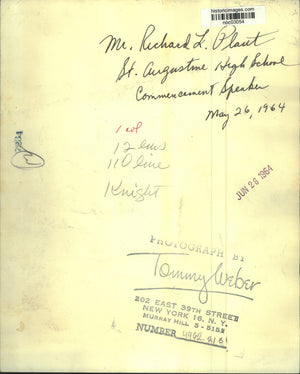 historicimages.com
noc03054
Mr. Richard L. Plant
St. Augustine High School
Commencement Speaker
May 26, 1964
1 col
110 line
Knight
JUN 26 1964
PHOTOGRAPH BY
Tommy Weber
202 EAST 39TH STREET
NEW YORK 16, N. Y.
MURRAY HILL 5-5152
NUMBER